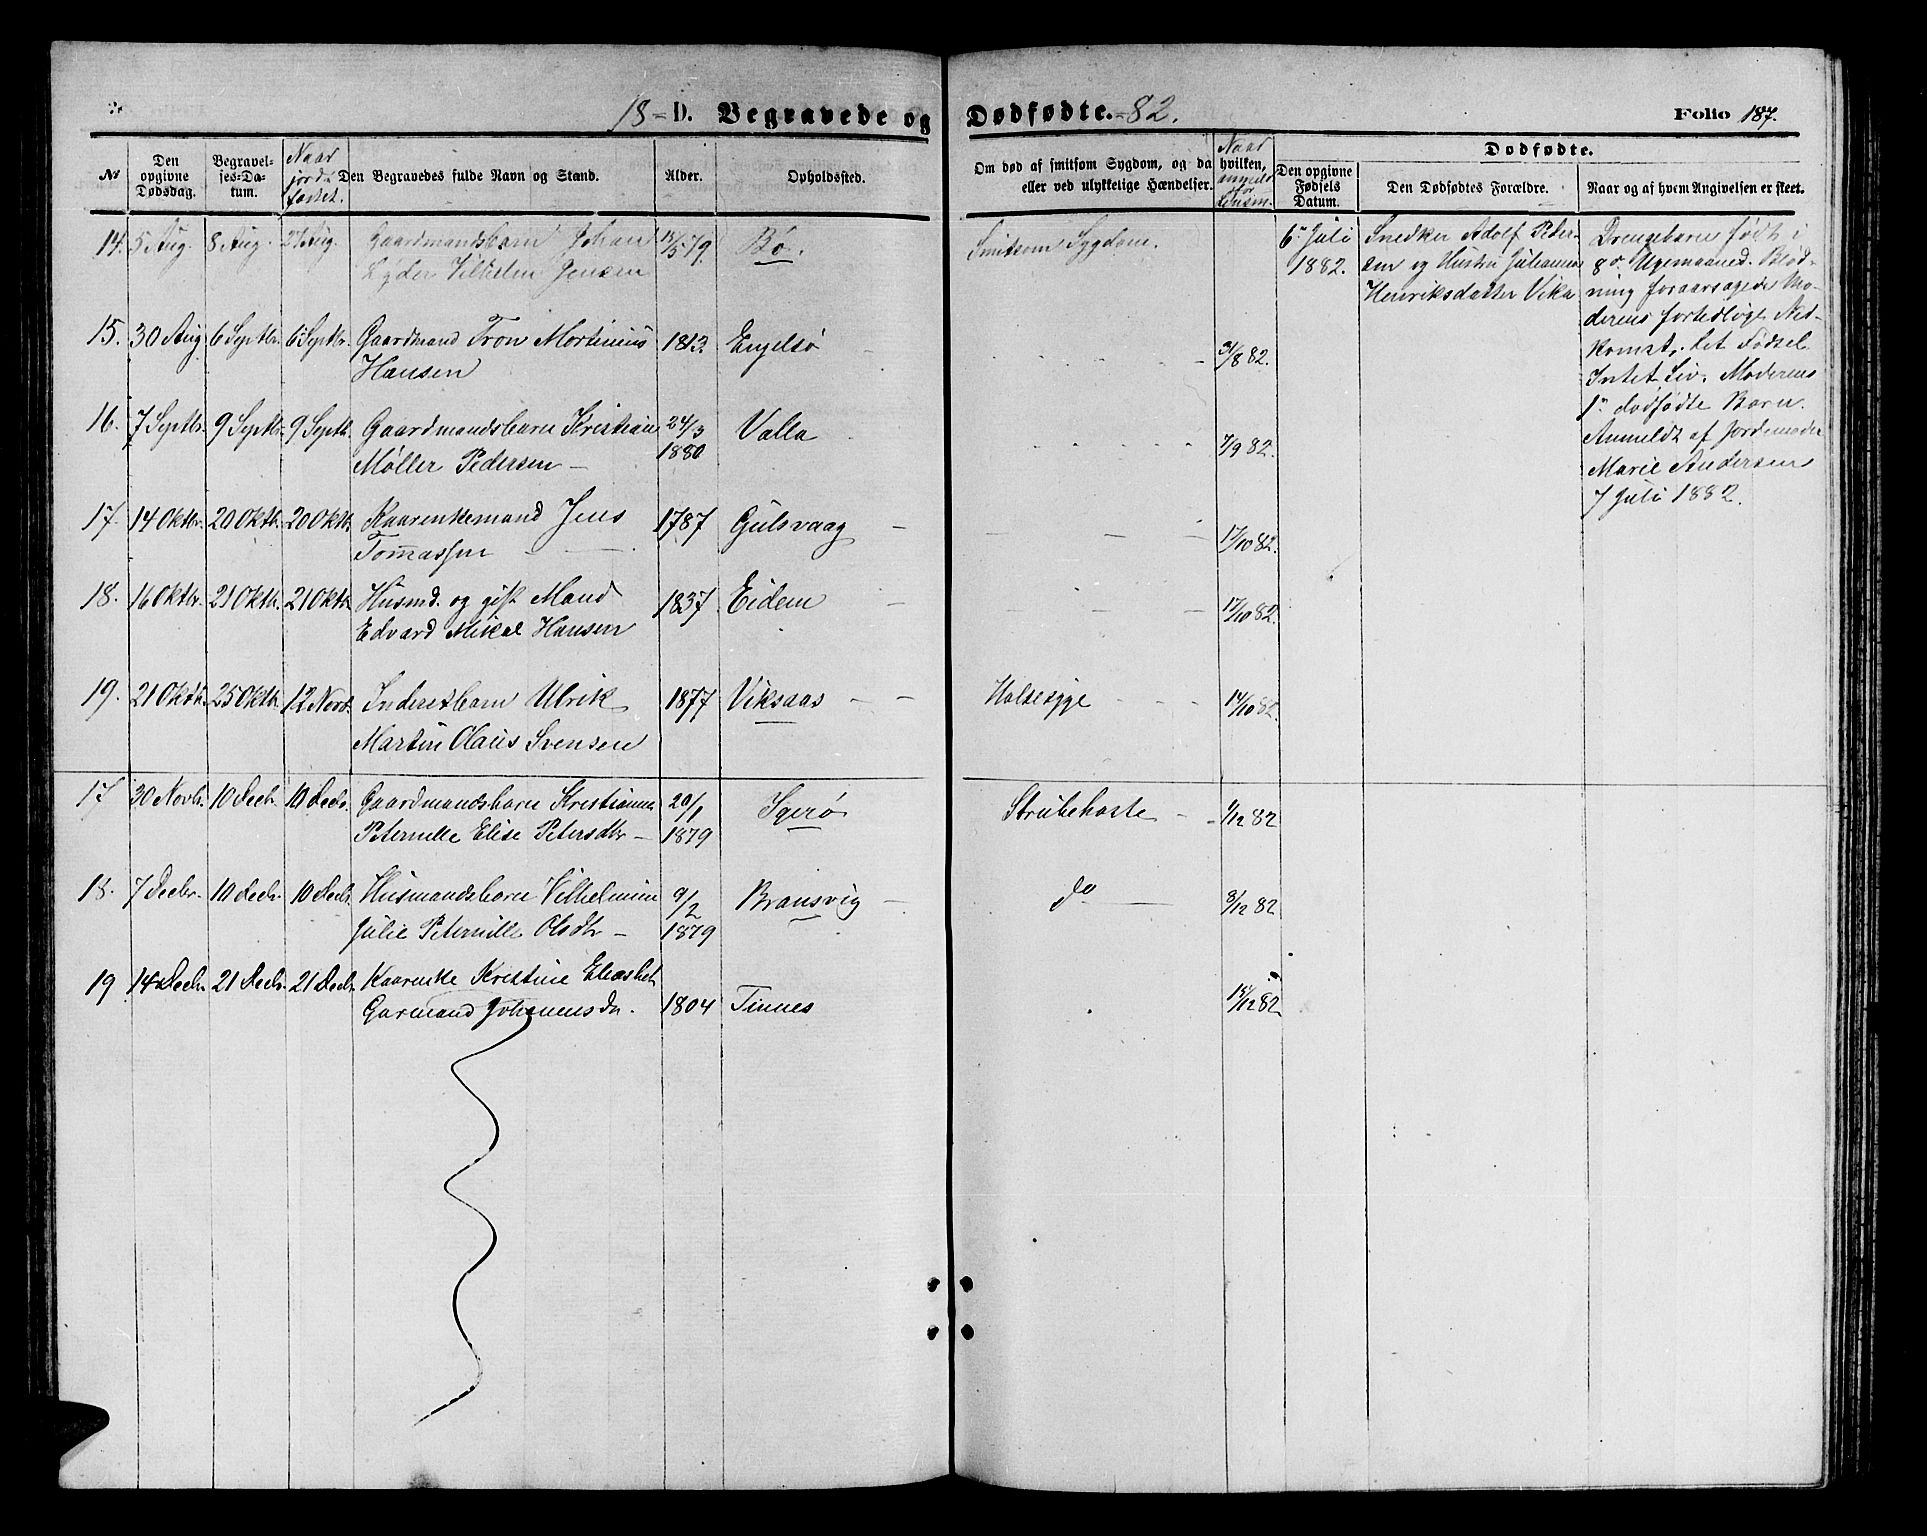 18 - D. Begravede og Dødfødte. - 82.
Folio 187.
No
Den opgivne Dødsdag.
Begravel-ses-Da-tum.
Naar jord-fæstet.
Den Begravedes fulde Navn og Stand.
Alder.
Opholdssted.
Om død af smitsom Sygdom, og da hvilken,
eller ved ulykkelige Hændelser.
Naar anmeldt for Lensm.
Dødfødte.
Den opgivne Fødsels Datum.
Den Dødfødtes Forældre.
Naar og af hvem Angivelsen er skeet.
14. 5 Aug. 8 Aug. 27 Aug. Gaardmandsbarn Johan 13/5 79. Bø. Smitsom Sygdom.
Lyder Jensen
15. 30 Aug 6 Septbr. 6 Septbr. Gaardmand Tron Mortinius 1813. Engelsø - 31/8 82.
Hansen
16. 7 Septbr. 9 Septbr. 9 Septb. Gaardmandsbarn Kristian 24/3 1880 Valla 7/9 82.
Møller Pedersen -
17. 14 Oktbr. 20 Oktb. 20 Oktb. Kaarenkemand Jens 1787 Gulsvaag - 17/10 82.
Tomassen
18. 16 Oktbr. 21 Oktb. 21 Oktb. Husmd. og gift Mand 1837 Eidem - 17/10 82.
Edvard Mikal Hansen
19. 21 Oktb. 25 Oktb. 12 Novb. Inderstbarn Ulrik 1877 Viksaas - Halsesyge 14/10 82.
Martin Olaus Svensen
17 30 Novb. 10 Decb. 10 Decb. Gaardmandsbarn Kristianna 20/1 1879 Igerø Strubehoste - 1/12 82
Peternille Elise Petersdtr -
18. 7 Decbr. 10 Decbr. 10 Decb. Husmandsbarn Vilhelmine 9/2 1879 Bransvig - do - 8/12 82
Julie Peternille Olsdtr -
19 14 Decbr. 21 Decb. 21 Decb. Kaarenke Kristine Elisabet
Garmand Johanensdr. 1804 Tinnes 15/12 82
6te Juli 1882.
Snedker Adolf Peder-
sen og Hustru Julianna
Henriksdatter Vika
Drengebarn født i
8de Ugemaaned. Blød-
ning foraarsagede Mo-
derens fortidlige Ned-
komst, let Fødsel
Intet Liv. Moderens
1te dødfødte Barn.
Anmeldt af Jordemoder
Marie Andersen
7 Juli 1882.